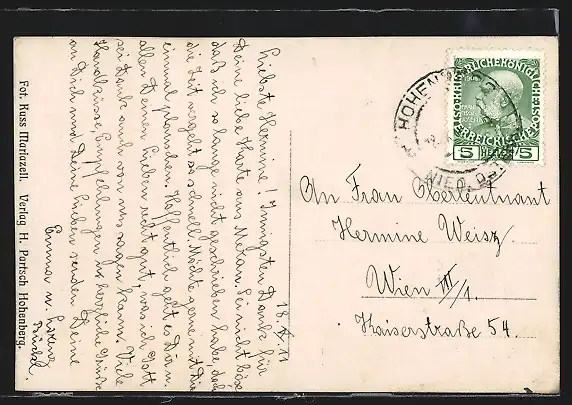 18. IV. 11
Liebste Hermine! Innigsten Dank für
Deine liebe Karte aus Meran. Sei nicht böse
daß ich so lange nicht geschrieben habe, doch
die Zeit vergeht so schnell. Möchte gerne mit Dir
einmal plauschen. Hoffentlich geht es Dir u.
allen Deinen Lieben recht gut, was ich Gott
sei Dank auch von uns sagen kann. Viele
Handküsse, Empfehlungen u. herzliche Grüße
an Dich und Deine Lieben senden Deine
Emma u.
Fot. Kuss Mariazell. Verlag H. Partsch Hohenberg.
KAISERLICHE KÖNIGLICHE
ÖSTERREICHISCHE POST
5 HELLER 5
HOHENBERG
NIED. Ö.
An Frau Oberleutnant
Hermine Weisz
Wien III/1.
Kaiserstraße 54.